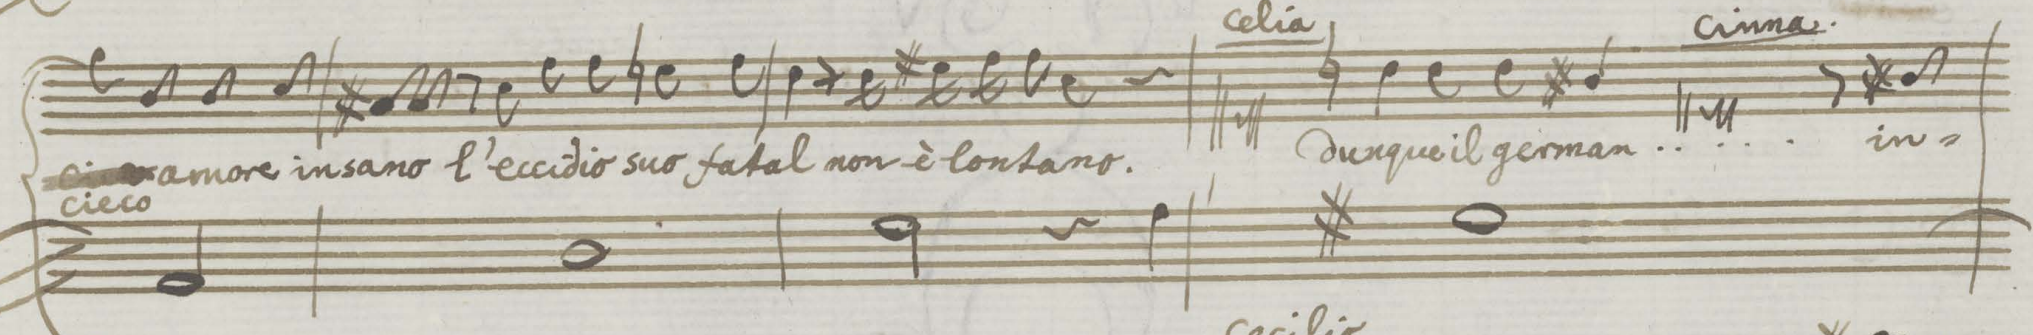 celia cinna.
amore insano l'eccidio suo fatal non è lontano. Dunque il german ..... in=
cieco
cecilio